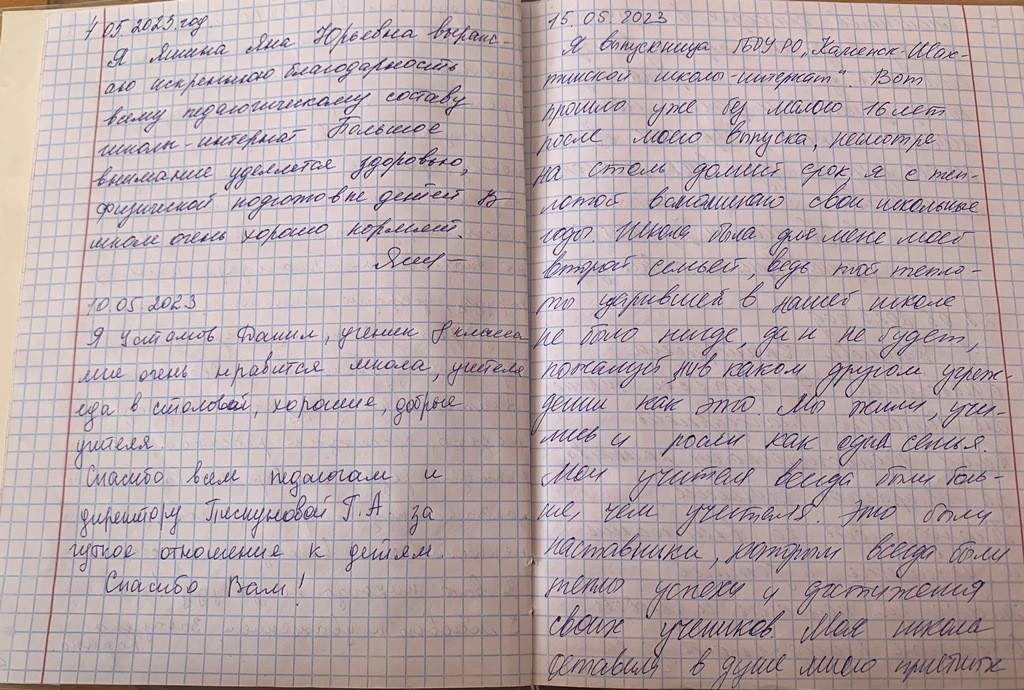 05 2023 год.
Я Яшина Яна Юрьевна выража-
аю искреннюю благодарность
всему педагогическому составу
школы-интернат Большое
внимание уделяется здоровью,
физической подготовке детей В
школе очень хорошо кормят.
10 05 2023
Я Данил, ученик 8 класса
мне очень нравится школа, учителя
еда в столовой, хорошие, добрые
учителя.
Спасибо всем педагогам и
директору Пескуновой Г.А. за
чуткое отношение к детям.
Спасибо Вам!
15. 05. 2023
Я выпускница ГБОУ РО „Каменск-Шах-
тинской школы-интернат". Вот
прошло уже без малого 16 лет
после моего выпуска, несмотре
на столь долгий срок, я с теп-
лотой вспоминаю свои школьные
годы. Школа была для мене моей
второй семьей, ведь той тепло-
ты царившей в нашей школе
не было нигде, да и не будет,
пожалуй, ни в каком другом учреж-
дении как это. Мы жили, учи-
лись и росли как одна семья.
Мои учителя всегда были боль-
ше, чем учителя. Это были
наставники, которым всегда были
успехи и достижения
своих учеников. Моя школа
оставила в душе много приятных